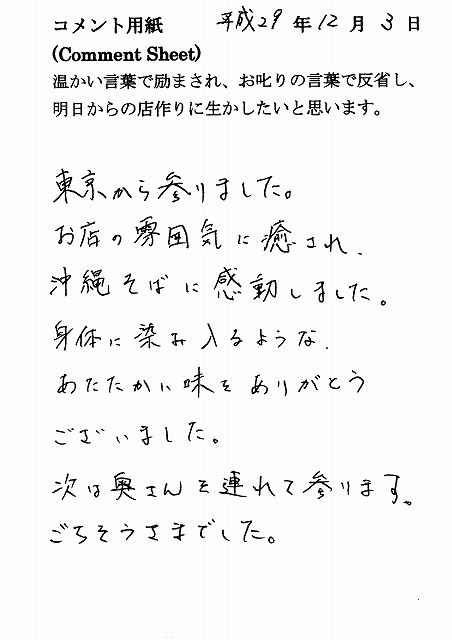 コメント用紙 平成29年12月3日
(Comment Sheet)
温かい言葉で励まされ、お叱りの言葉で反省し、
明日からの店作りに生かしたいと思います。
東京から参りました。
お店の雰囲気に癒され、
沖縄そばに感動しました。
身体に染み入るような、
あたたかい味をありがとう
ございました。
次は奥さんを連れて参ります。
ごちそうさまでした。